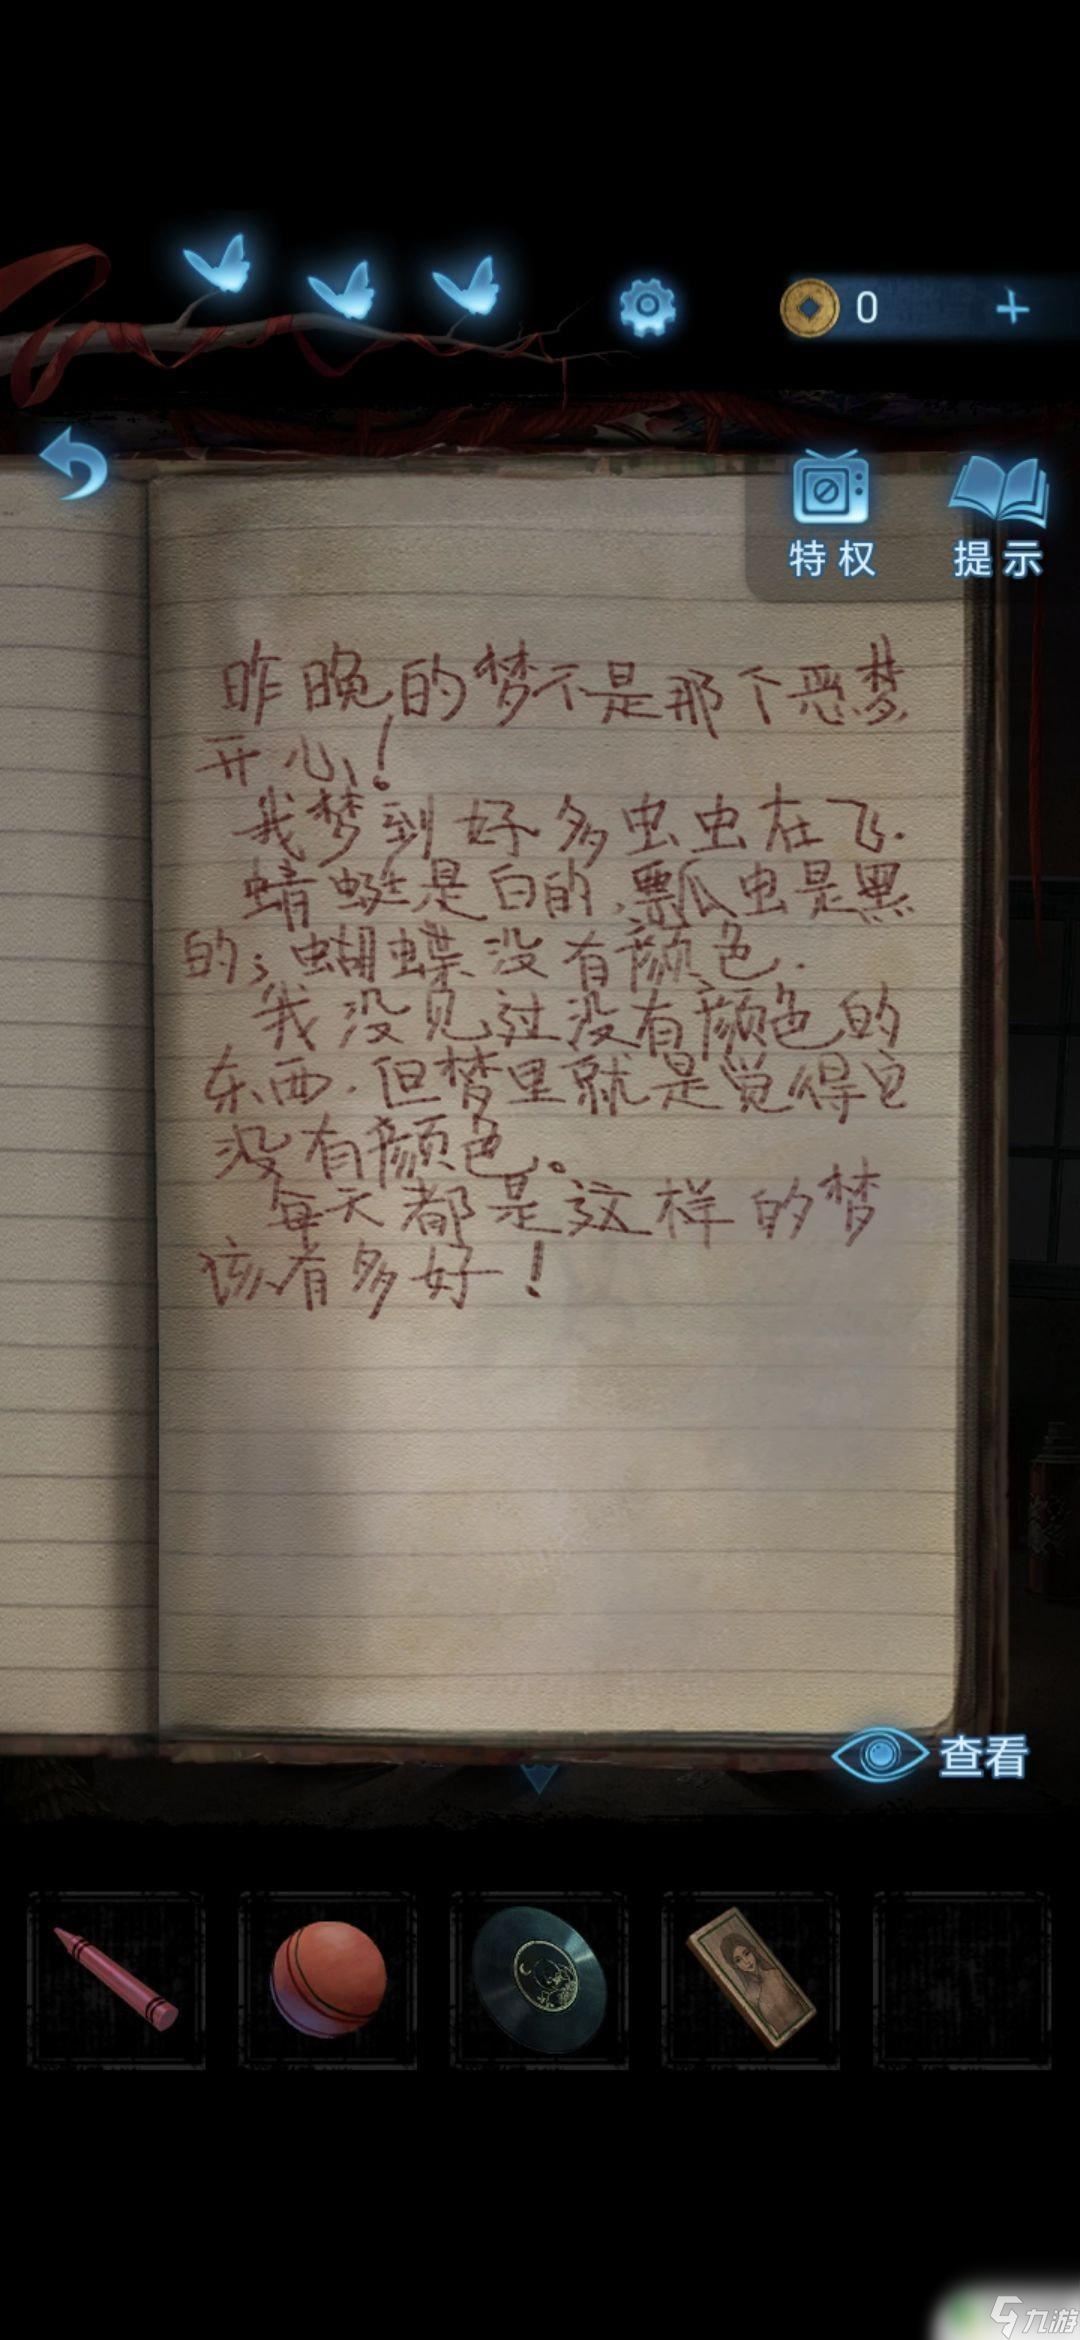 0
特权
提示
昨晚的梦不是那个恶梦
开心!
我梦到好多虫虫在飞.
蜻蜓是白的,瓢瓜虫是黑
的;蝴蝶没有颜色.
我没见过没有颜色的
东西.但梦里就是觉得它
没有颜色。
每天都是这样的梦
该有多好!
查看
九游